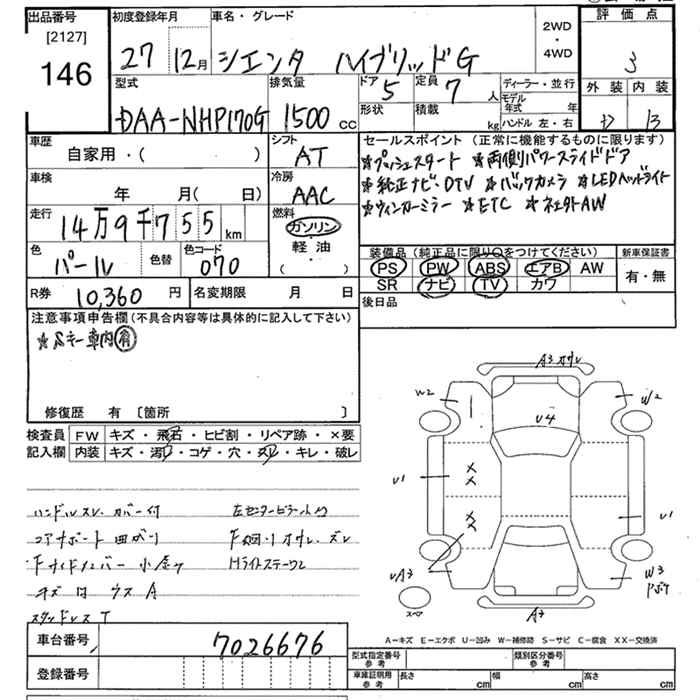 出品番号
[2127]
146
初度登録年月
27 12月
車名・グレード
シエンタ ハイブリッドG
2WD
・
4WD
評価点
3
外装 内装
D B
型式
DAA-NHP170G
排気量
1500 cc
ドア 5
定員 7 人
形状
積載 kg
ディーラー・並行
モデル年式 年
ハンドル 左・右
車歴
自家用・( )
シフト
AT
車検
年 月( 日)
冷房
AAC
走行
14万9千755km
燃料
ガソリン
軽油
・
( )
色
パール
色替
色コード
070
R券 10,360 円
名変期限 月 日
セールスポイント (正常に機能するものに限ります)
★プッシュスタート ★両側パワースライドドア
★純正ナビ・DTV ★バックカメラ ★LEDヘッドライト
★ウィンカーミラー ★ETC ★社外AW
装備品 (純正品に限り○をつけてください)
PS PW ABS エアB AW
SR ナビ TV カワ
新車保証書
有・無
後日品
注意事項申告欄 (不具合内容等は具体的に記入して下さい)
★Sキー車内有
修復歴 有 [箇所 ]
検査員記入欄
FW キズ・飛石・ヒビ割・リペア跡・×要
内装 キズ・汚レ・コゲ・穴・スレ・キレ・破レ
ハンドルスレ カバー付
コアサポート曲がり
Fサイドメンバー小歪
キズ凹 ウス A
スタッドレス T
Hライトステーワレ
A3
W2
W2
U4
U1
U1
UA3
W3
スペア
A3
A－キズ E－エクボ U－凹み W－補修跡 S－サビ C－腐食 XX－交換済
車台番号
7026676
登録番号
型式指定番号 参考
類別区分番号 参考
車庫証明用 参考
長さ cm 幅 cm 高さ cm